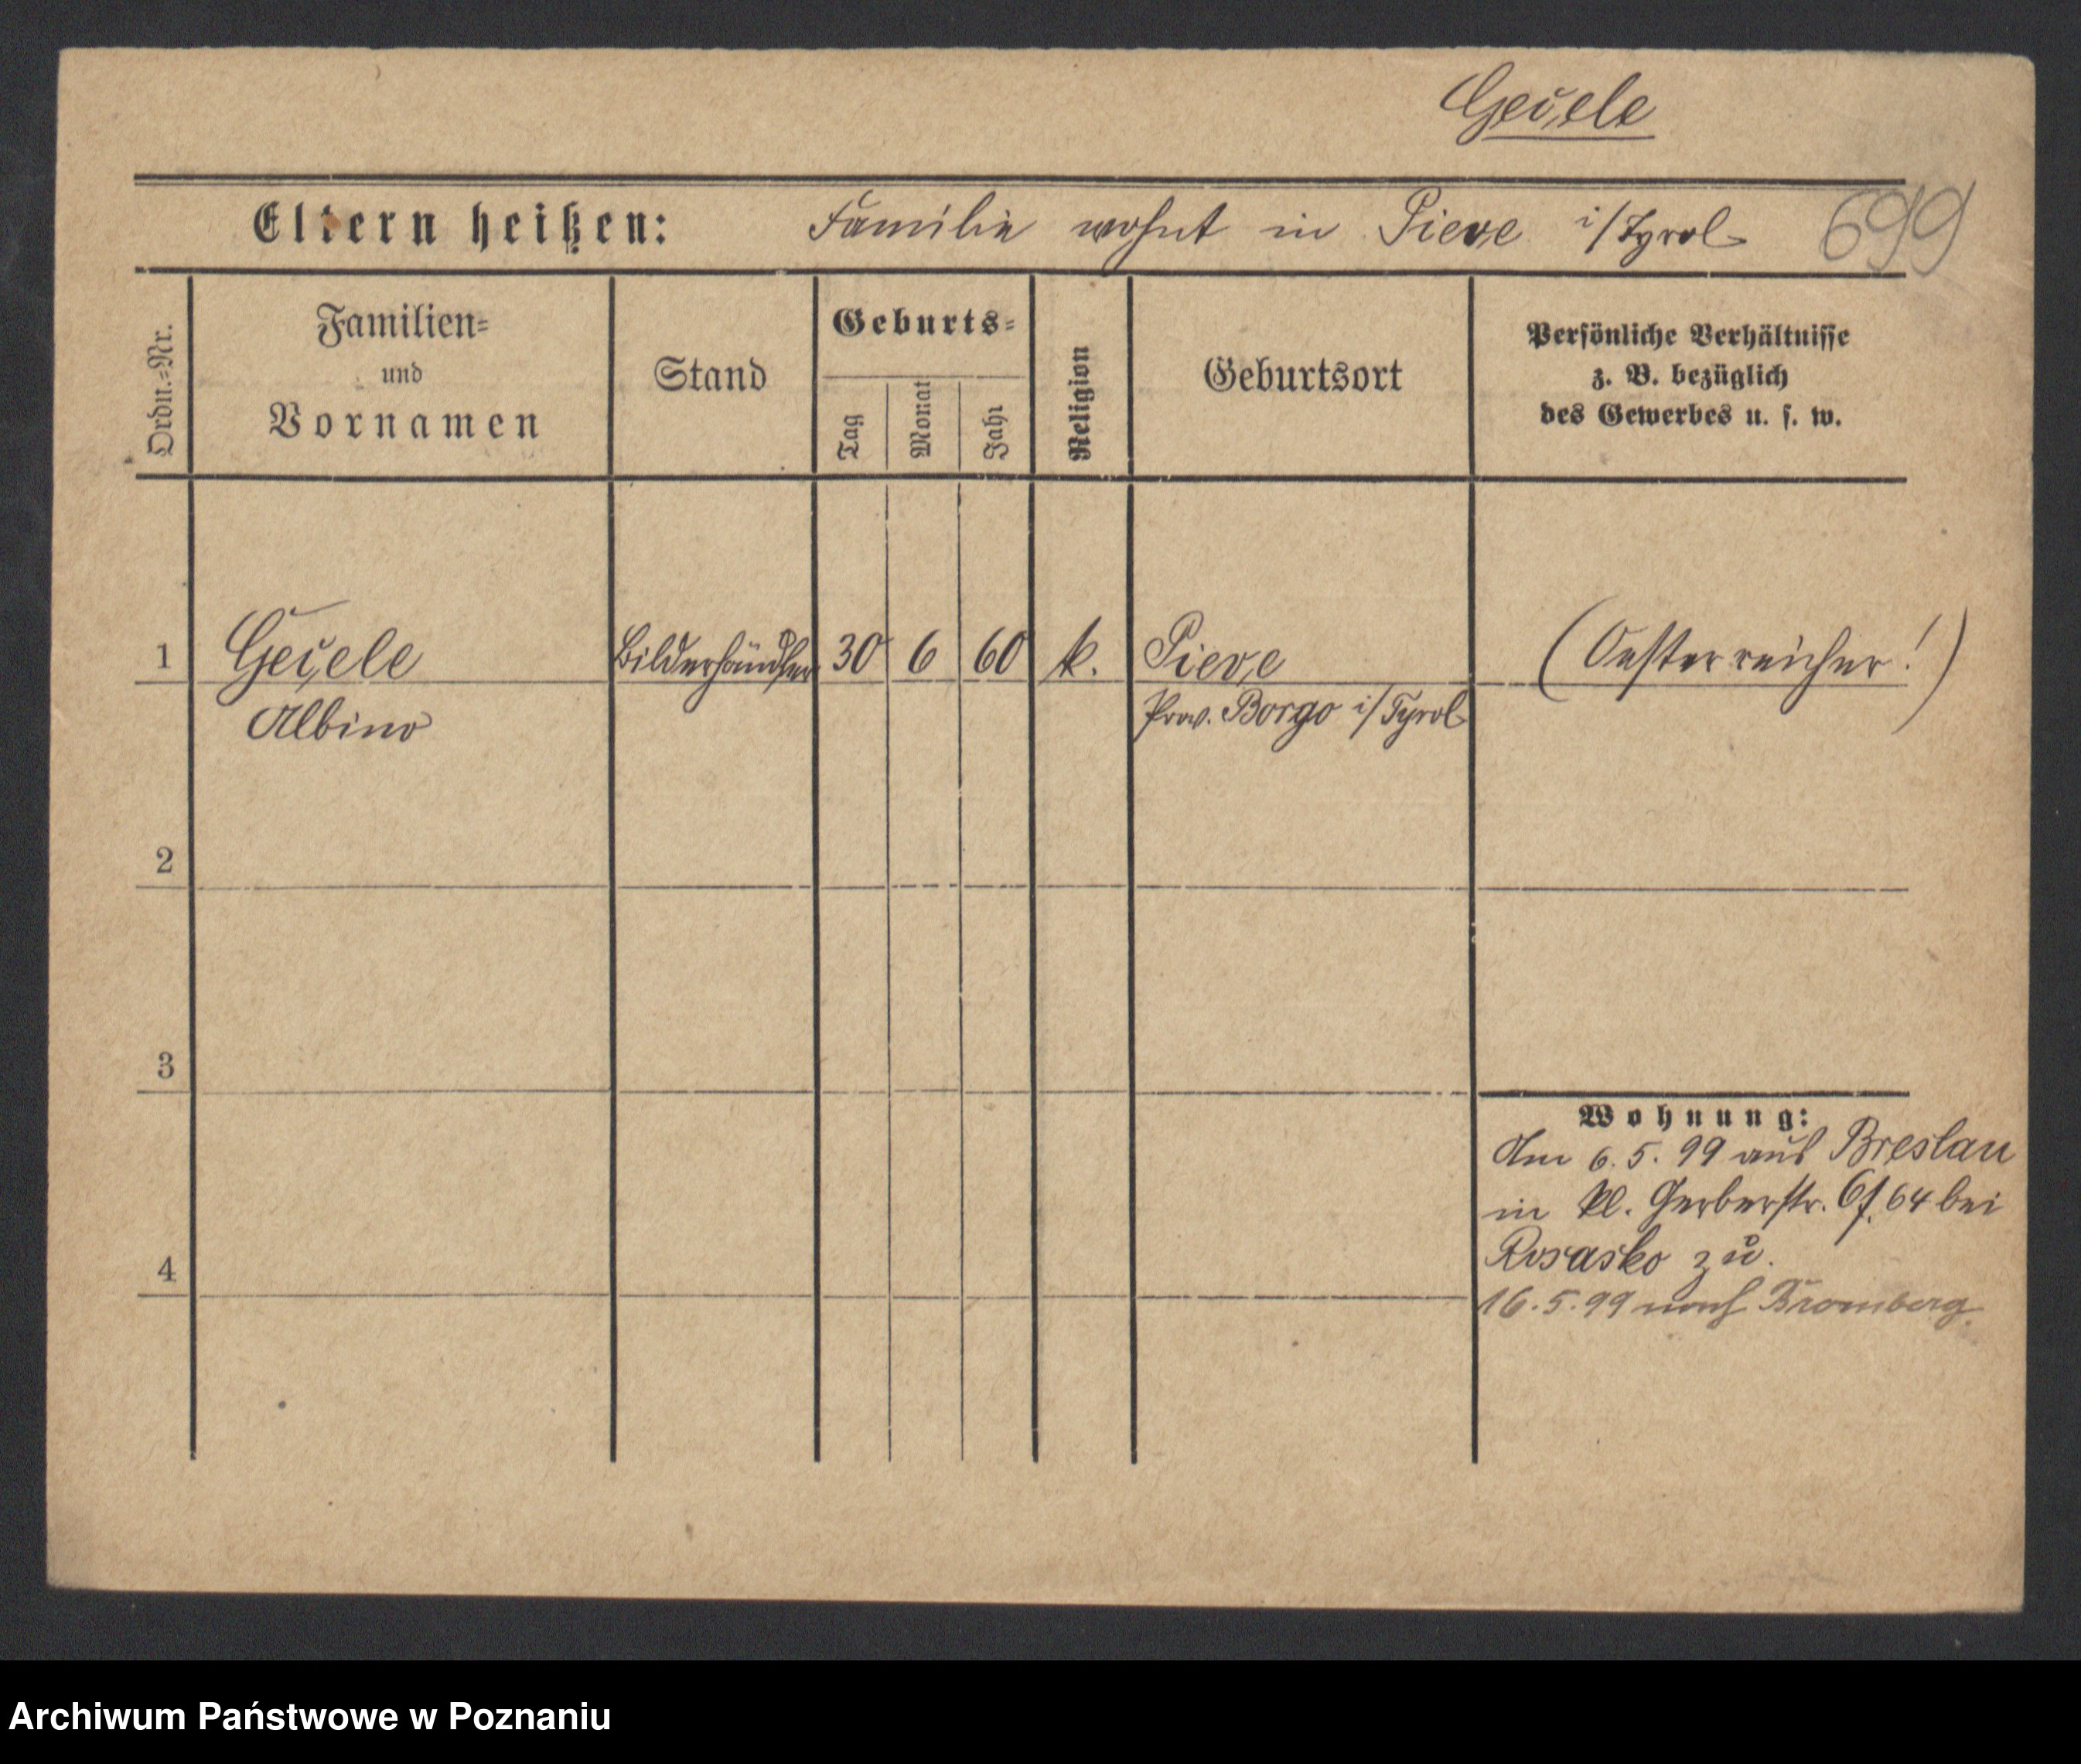 Gecele
Eltern heißen: Familie wohnt in Pieve i/Tyrol 699
Ordn.=Nr.
Familien=
und
Vornamen
Stand
Geburts=
Tag
Monat
Jahr
Religion
Geburtsort
Persönliche Verhältnisse
z. B. bezüglich
des Gewerbes u. s. w.
1 Gecele Bilderhändler 30 6 60 k. Pieve (Oesterreicher!)
Albino Prov. Borgo i/Tyrol
2
3
Wohnung:
Am 6.5.99 aus Breslau
in kl. Gerberstr. 64 bei
Rosasko zu.
4
16.5.99 nach Bromberg.
Archiwum Państwowe w Poznaniu